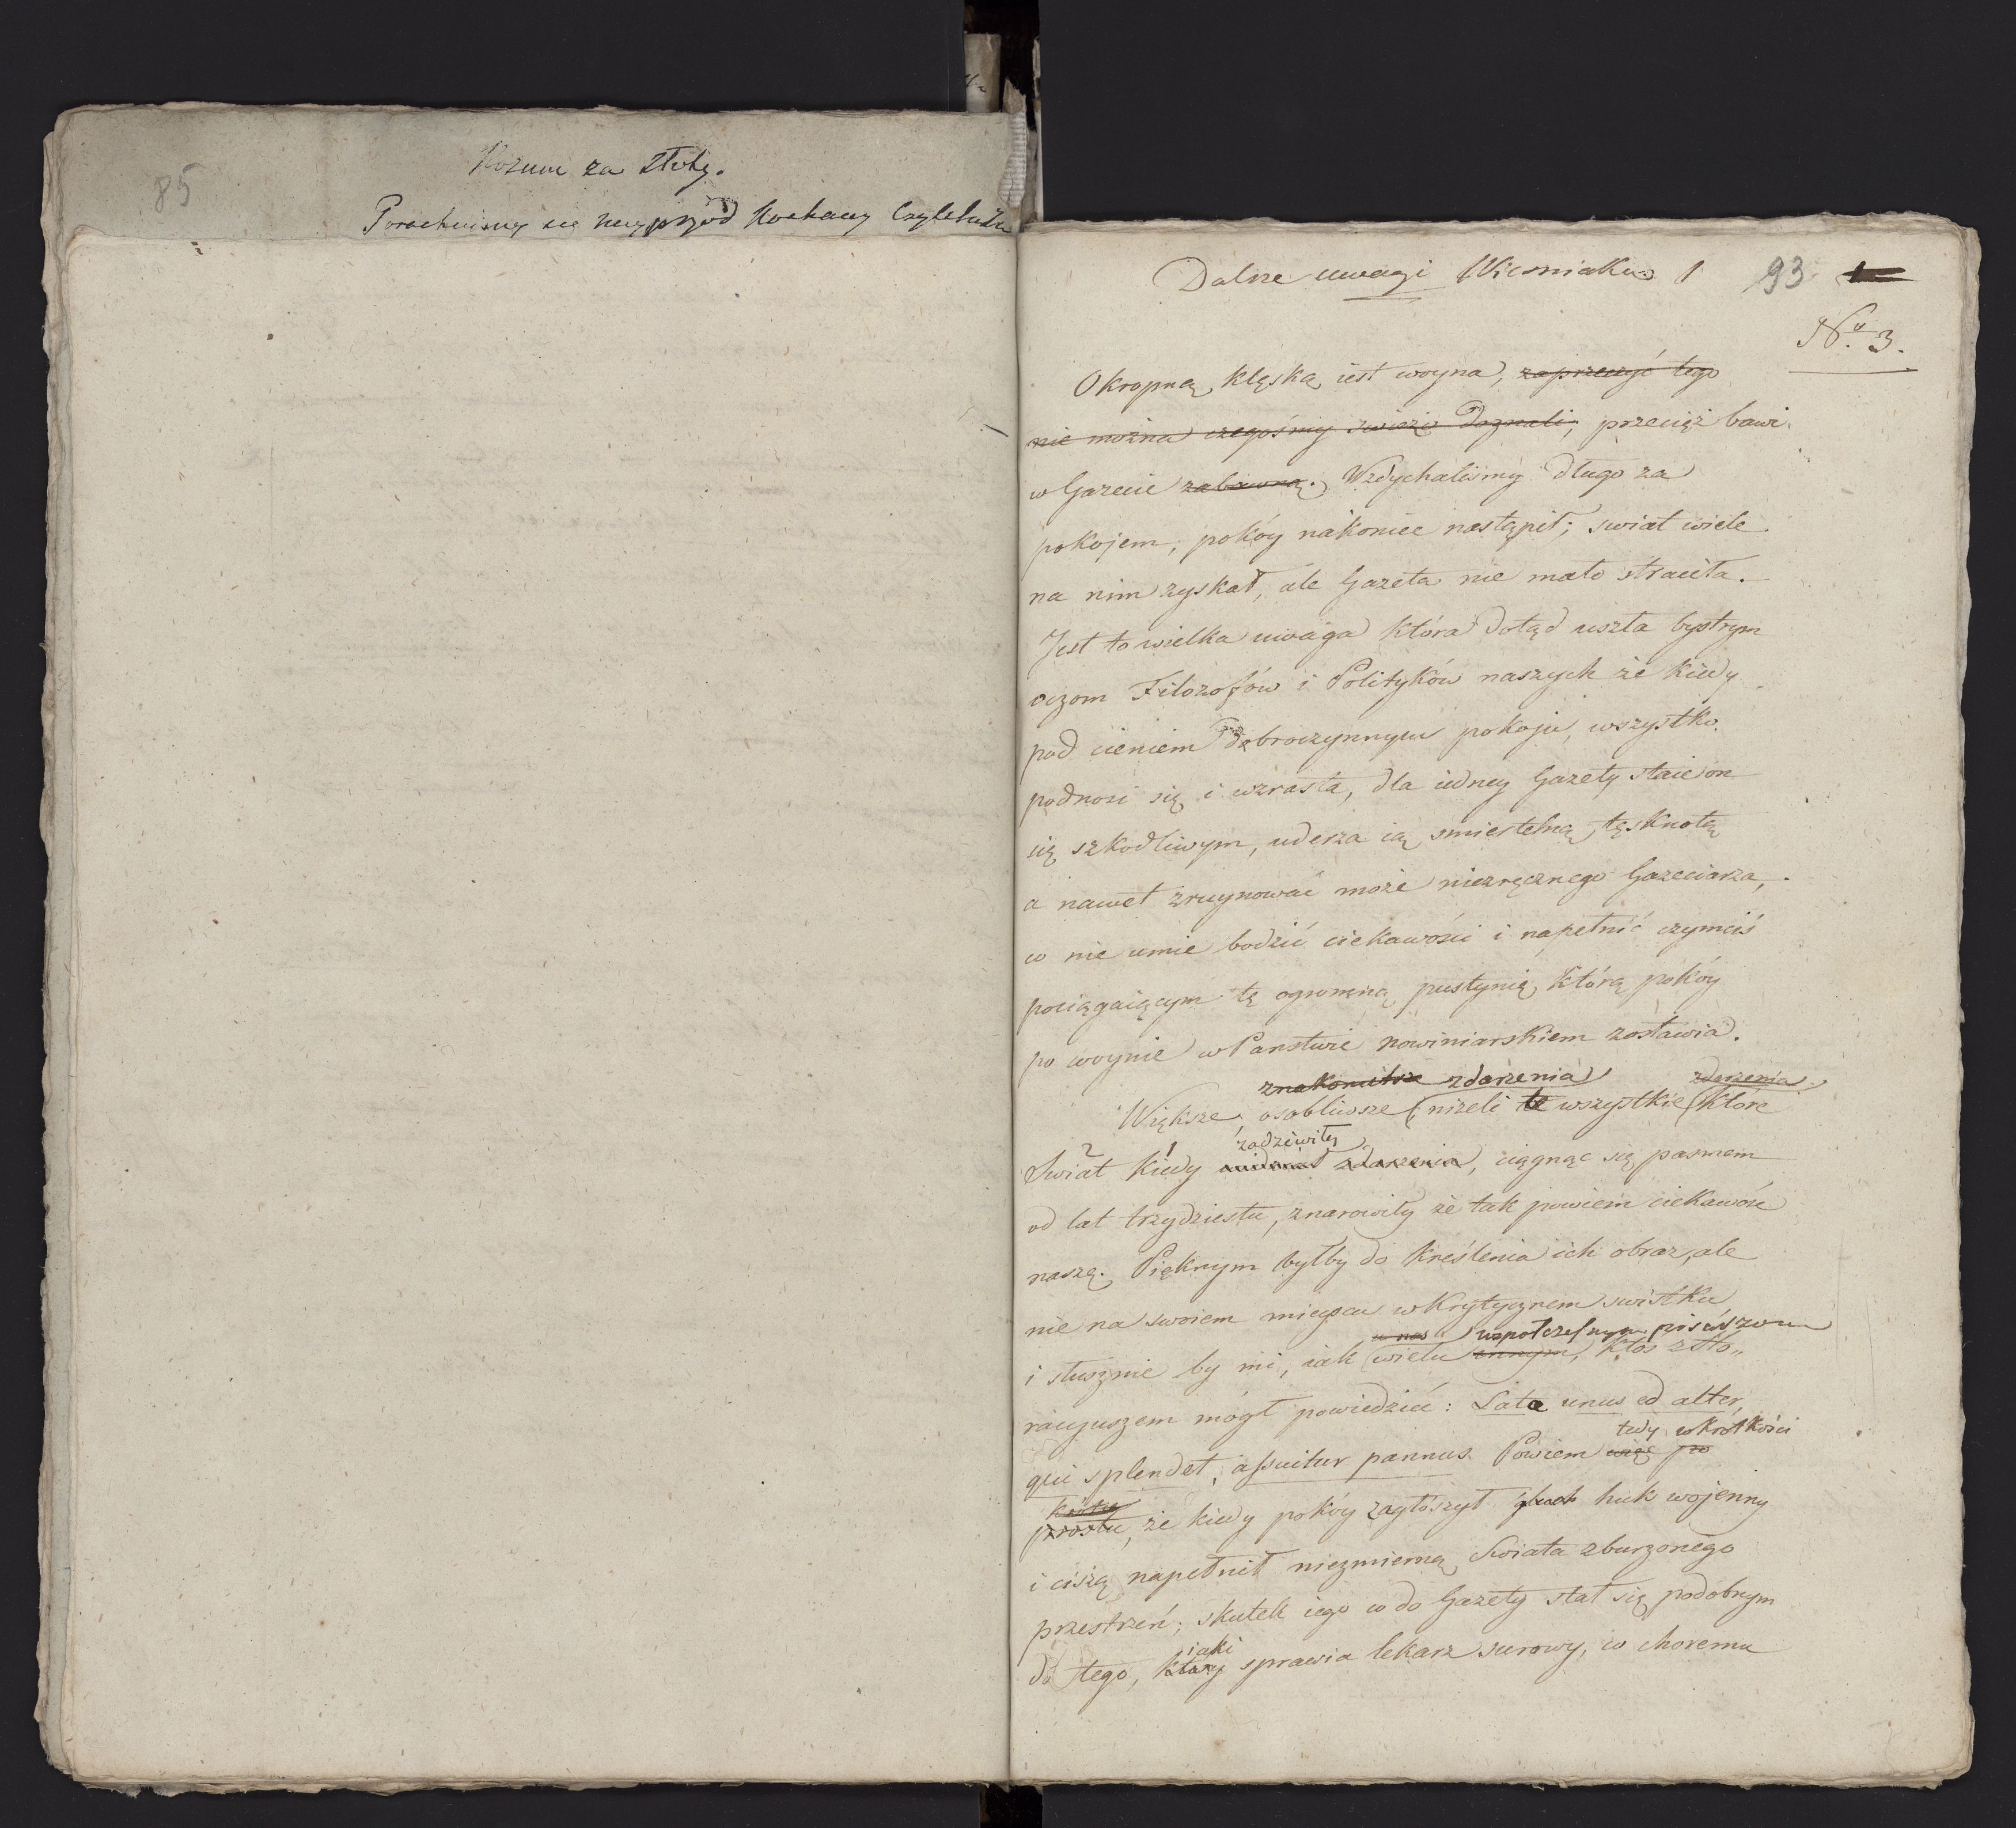 85
Rozum za Złoty.
Porachuimy się nayprzód kochany Czytelniku
Dalsze uwagi Wiesniaka 1 93
Nº 3.
Okropną klęską iest woyna, zaprzeczyć tego
nie można czegośmy swieżo doznali, przecięż bawi
w Gazecie zabawną. Wzdychaliśmy długo za
pokojem, pokóy nakoniec nastąpił; swiat wiele
na nim zyskał, ale Gazeta nie mało straciła.
Jest to wielka uwaga która dotąd uszła bystrym
oczom Filozofów i Polityków naszych że kiedy
pod cieniem dobroczynnym pokoju, wszystko
podnosi się i wzrasta, dla iedney Gazety staie on
się szkodliwym, uderza ią smiertelną tęsknotą
a nawet zruynować może niezręcznego Gazeciarza,
co nie umie bodzić ciekawości i napełnić czymciś
pociągaiącym tę ogromną pustynią, którą pokóy
po woynie w Panstwie nowiniarskiem zostawia.
znakomitsze zdarzenia zdarzenia
Większe, osobliwsze niżeli te wszystkie które
zadziwiły
2 1
Swiat kiedy widział zdarzenia, ciągnąc się pasmem
od lat trzydziestu, znarowiły że tak powiem ciekawość
naszą. Pięknym byłby do kreślenia ich obraz, ale
nie na swoiem mieyscu w krytycznem swistku
u nas wspołczesnym pisarzom
i słusznie by mi, iak wielu innym, ktoś z Ho„
racyuszem mógł powiedzieć: Late unus ed alter,
tedy w krótkości
qui splendet, assuitur pannus. Powiem więc po
krótce
prostu, że kiedy pokóy zagłószył głuch huk wojenny
i ciszą napełnił niezmierną Swiata zburzonego
przestrzeń; skutek iego co do Gazety stał się podobnym
iaki
do tego, który sprawia lekarz surowy, co choremu